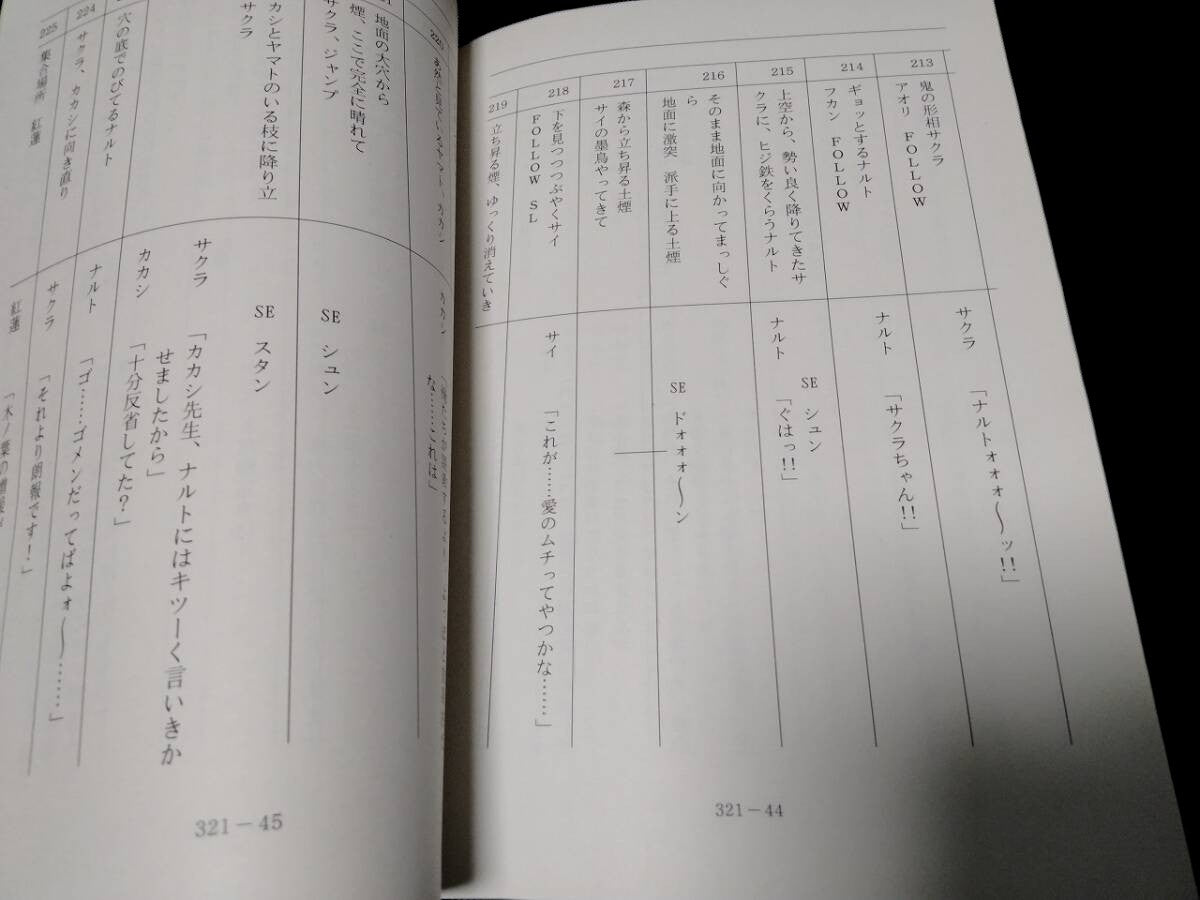 213
鬼の形相サクラ
アオリ FOLLOW
サクラ
「ナルトォォォ〜ッ!!」
214
ギョッとするナルト
フカン FOLLOW
ナルト
「サクラちゃん!!」
215
上空から、勢い良く降りてきたサ
クラに、ヒジ鉄をくらうナルト
SE シュン
ナルト
「ぐはっ!!」
216
そのまま地面に向かってまっしぐ
ら
地面に激突 派手に上る土煙
SE ドォォォ〜ン
217
森から立ち昇る土煙
サイの墨鳥やってきて
218
下を見つつつぶやくサイ
FOLLOW SL
サイ
「これが……愛のムチってやつかな……」
219
立ち昇る煙、ゆっくり消えていき
321－44
220
カカシ
な……これは」
地面の大穴から
煙、ここで完全に晴れて
サクラ、ジャンプ
SE シュン
カシとヤマトのいる枝に降り立
サクラ
SE スタン
サクラ
「カカシ先生、ナルトにはキツーく言いきか
せましたから」
カカシ
「十分反省してた？」
穴の底でのびてるナルト
ナルト
「ゴ……ゴメンだってばよォ〜……」
224
サクラ、カカシに向き直り
サクラ
「それより朗報です！」
225
集合場所 紅蓮
紅蓮
「木ノ葉の
321－45